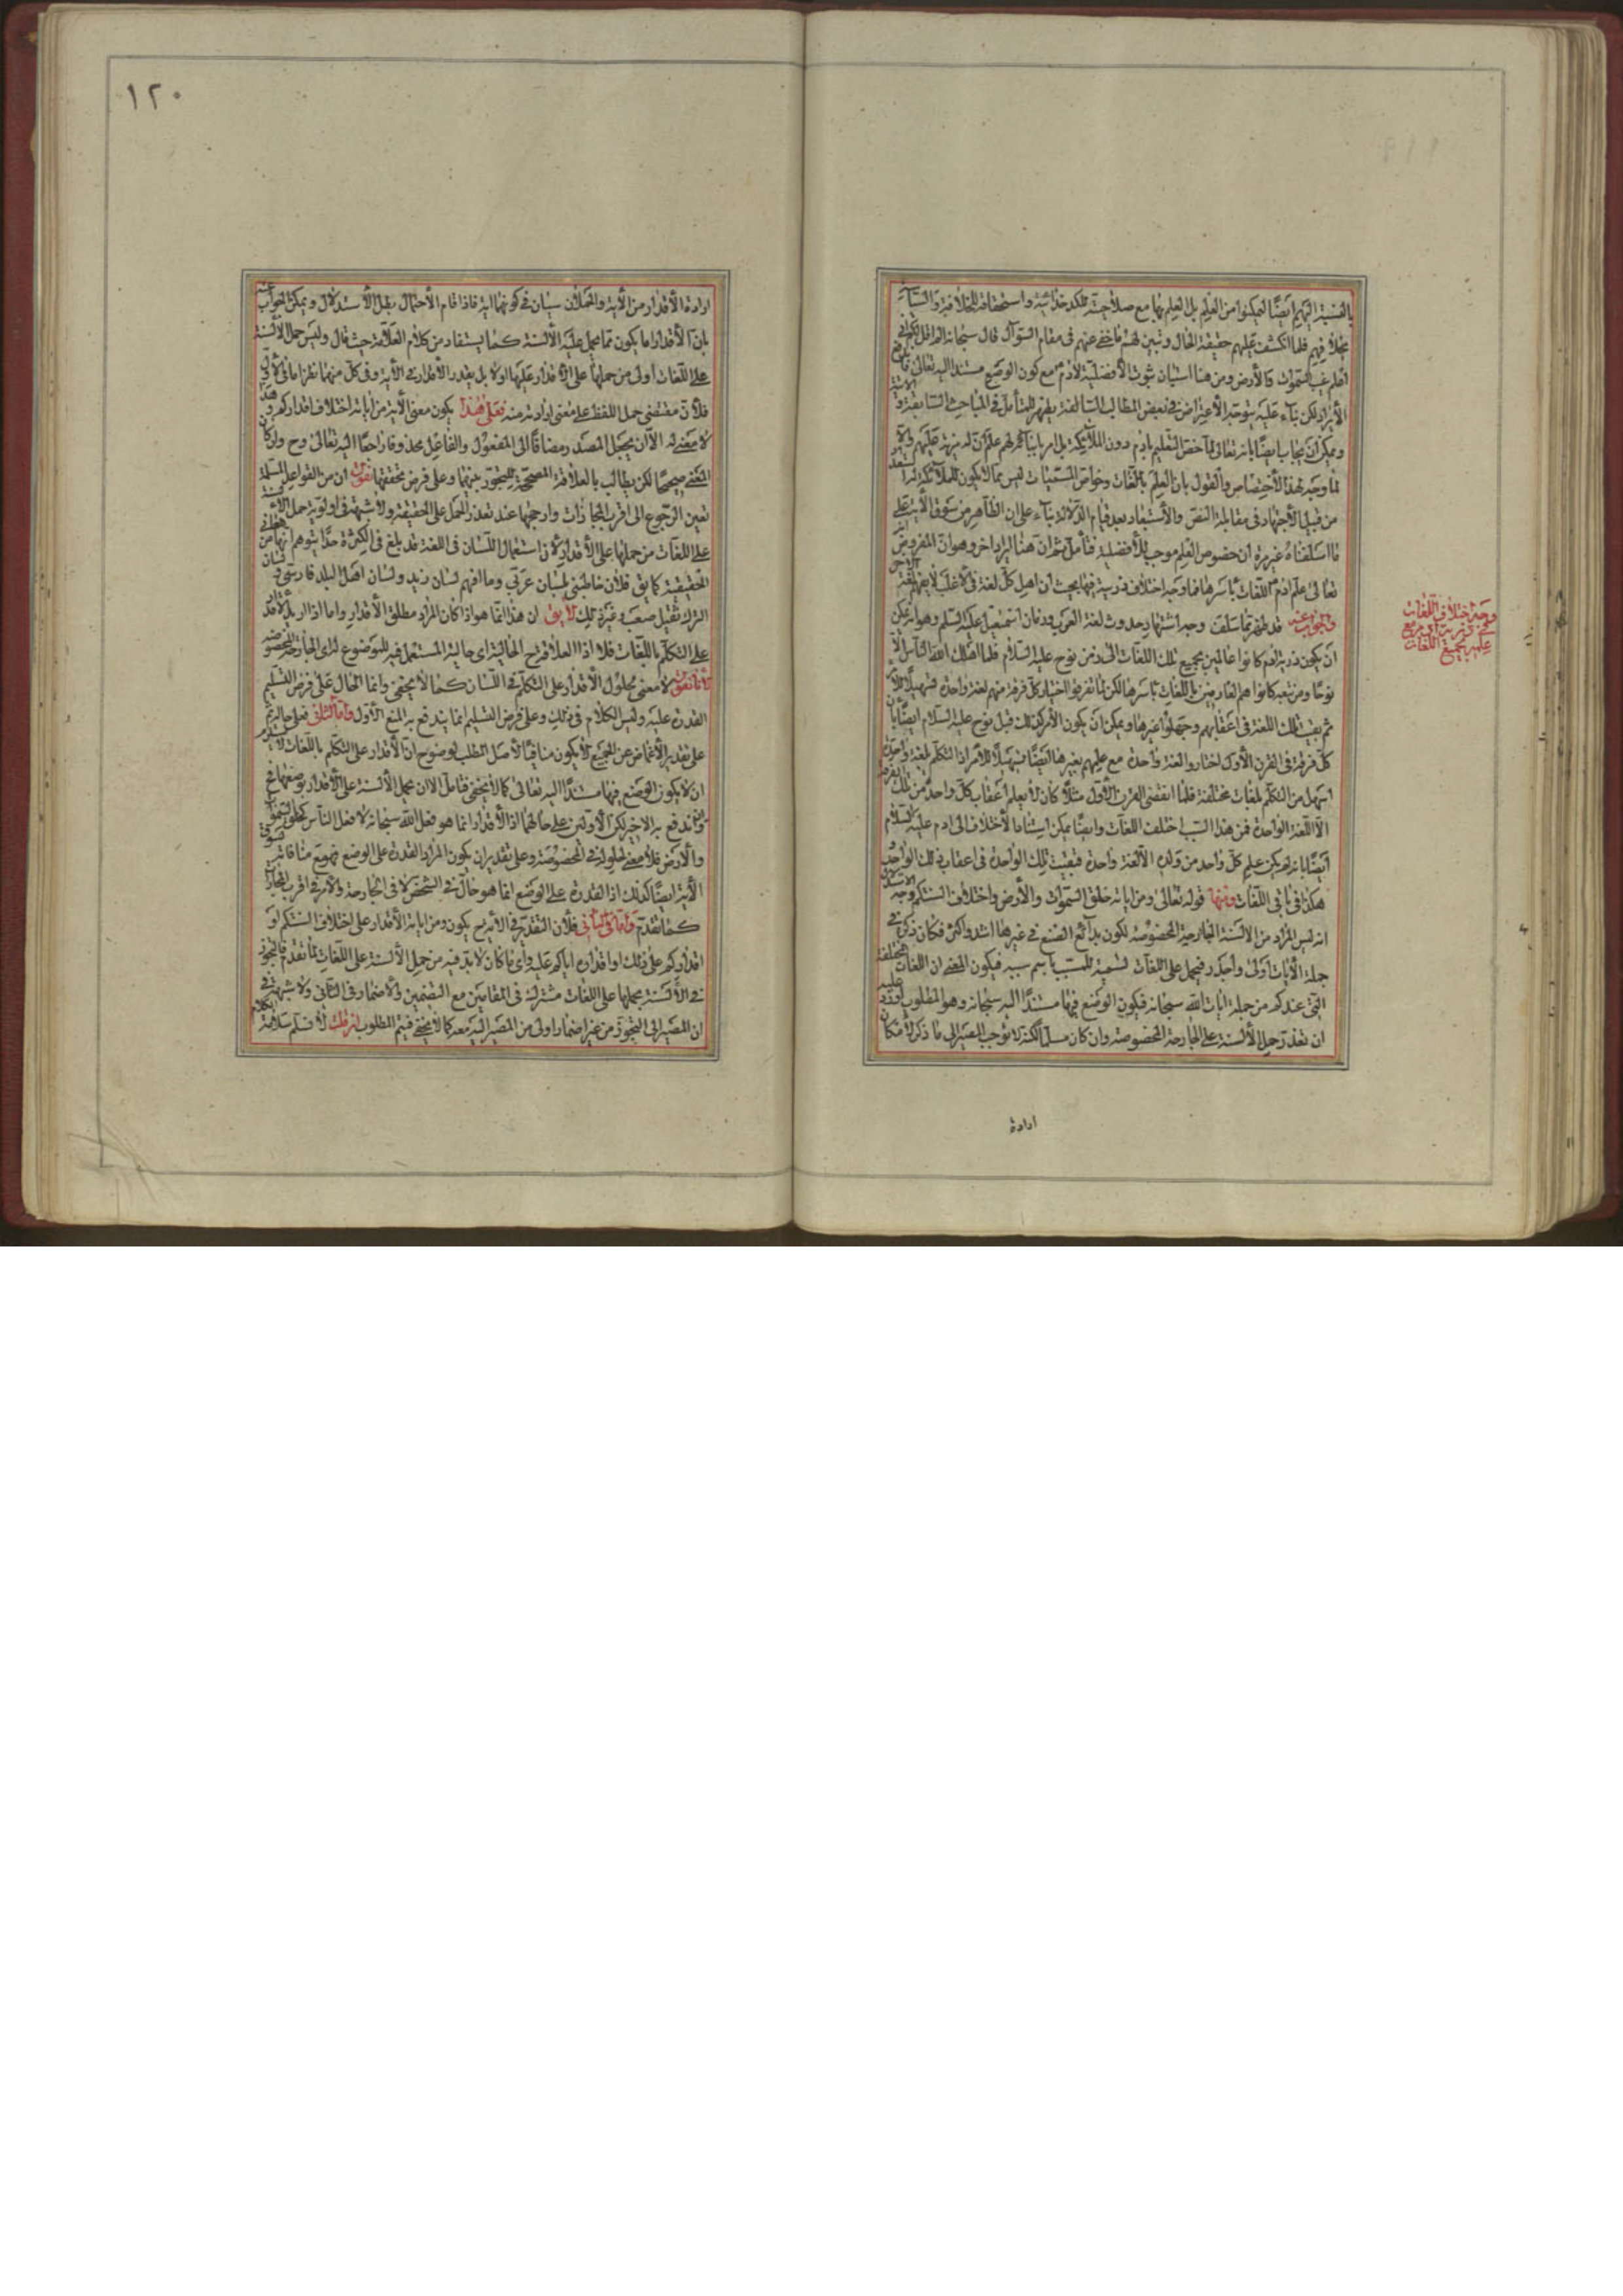 بالنسبة اليهم ايضا لم يكونوا من العلم بل العلم بها مع صلاحيته
فيهم فلما انكشف عليهم حقيقة الحال وتبين لهم ما خفي عنهم في مقام السؤال قال سبحانه الم اقل لكم اني
اعلم غيب السموات والأرض ومن هنا استبان ثبوت الأفضلية لادم مع كون الوضع مستندا اليه تعالى
الايراد لكن بناء عليه يتوجه الاعتراض في بعض المطالب السالفة يظهر للمتأمل في المباحث السابقة
ويمكن أن يجاب ايضا بانه تعالى لما خص التعليم بادم دون الملائكة
فما وجه هذا الأختصاص والقول بان العلم باللغات وخواص المسميات ليس مما لا يكون للملائكة
من قبيل الأجتهاد في مقابلة النص والأستبعاد بعد قيام الدلالة بناء على ان الظاهر من سوق الآية على
ما اسلفناه غير مرة ان خصوص العلم موجب للأفضلية فتأمل ثم ان هنا ايراد اخر وهو ان المفروض
تعالى علم ادم اللغات بأسرها فما وجه اختلاف ذريته فيها بحيث ان اهل كل لغة في الأغلب لا يفهم لغة
والجواب عنه قد ظهر مما سلف وجه اشتهار حدوث لغة العرب في زمان اسمعيل عليه السلم وهو انه يمكن
ان يكون ذرية ادم كانوا عالمين بجميع تلك اللغات الى زمن نوح عليه السلام فلما اهلك الله الناس الا
نوحا ومن تبعه كانوا هم العارفين باللغات بأسرها لكن لما تفرقوا اختار كل فرقة منهم لغة واحدة
ثم بقيت تلك اللغة في اعقابهم وجهلوا غيرها ويمكن ان يكون الأمر كذلك قبل نوح عليه السلام ايضا بان
كل فرقة في القرن الأول اختاروا لغة واحدة مع علمهم بغيرها ايضا تسهيلا للأمر اذ التكلم بلغة واحدة
اسهل من التكلم بلغات مختلفة فلما انقضى القرن الأول مثلا كان لا يعلم اعقاب كل واحد من تلك
الا اللغة الواحدة فمن هذا السبب اختلف اللغات وايضا يمكن استناد الأختلاف الى ادم عليه السلام
ايضا بانه لم يكن علم كل واحد من ولده الا لغة واحدة فبقيت تلك الواحدة في اعقاب ذلك الواحد
هكذا في باقي اللغات ومنها قوله تعالى ومن اياته خلق السموات والأرض واختلاف السنتكم وجه
انه ليس المراد من الألسنة الجارحة المخصوصة لكون بدائع الصنع في غيرها اشد واكثر فكان ذكره في
جملة الأيات اولى واجدر فيحمل على اللغات تسمية للمسبب باسم سببه فيكون المعنى ان اللغات المختلفة
التي عندكم من جملة ايات الله سبحانه فيكون الوضع فيها مستندا اليه سبحانه وهو المطلوب
ان تعذر حمل الألسنة على الجارحة المخصوصة وان كان مسلما لكنه لا يوجب المصير الى ما ذكر
وجه اختلاف اللغات
في ذرية ادم مع
علمه بجميع اللغات
ارادة
١٢٠
ارادة الأقدار من الأية والحملان سيان في كونهما اية فاذا قام الأحتمال بطل الأستدلال ويمكن الجواب
بان الأقدار اما يكون مما يحمل عليه الألسنة كما يستفاد من كلام العلامة حيث قال وليس حمل الألسنة
على اللغات اولى من حملها على الأقدار عليها اولا بل يقدر الأقدار في الأية وفي كل منهما نظر اما في الأول
فلأن مقتضى حمل اللفظ على معنى ارادته منه فعلى هذا يكون معنى الأية من اياته اختلاف اقداركم وهذا
لا معنى له الا ان يجعل المصدر مضافا الى المفعول والفاعل محذوفا راجعا اليه تعالى وح وان كان
المعنى صحيحا لكن يطالب بالعلاقة المصححة للتجوز بينهما وعلى فرض تحققها نقول ان من القواعد المسلمة
تعين الرجوع الى اقرب المجازات وارجحها عند تعذر الحمل على الحقيقة ولا شبهة في اولوية حمل الألسنة
على اللغات من حملها على الأقدار لان استعمال اللسان في اللغة قد بلغ في الكثرة حدا يتوهم انها من
الحقيقية كما يق فلان خاطبني بلسان عربي وما افهم لسان زيد ولسان اهل البلد فارسي ولسان
الترك ثقيل صعب وغير ذلك لا يق ان هذا انما هو اذا كان المراد مطلق الأقدار واما اذا اريد الأقدار
على التكلم باللغات فلا اذ العلاقة ح الحالية اي حالية المستعمل فيه للموضوع له اي الجارحة المخصوصة
لأنا نقول لا معنى لحلول الأقدار على التكلم في اللسان كما لا يخفى وانما الحال على فرض التسليم
القدرة عليه وليس الكلام في ذلك وعلى فرض التسليم انما يندفع به المنع الأول واما الثاني فعلى حاله ثم
على تقدير الأغماض عن الجميع لا يكون منافيا لأصل المطلب لوضوح ان الأقدار على التكلم باللغات لا يستلزم
ان لا يكون الوضع فيها مستندا اليه تعالى كما لا يخفى فتأمل الا ان يحمل الألسنة على الأقدار بوضعها فح
وان يندفع به الاخير لكن الأولين على حالهما اذ الأقدار انما هو فعل الله سبحانه لا فعل الناس كخلق السموات
والأرض فلا معنى لحلوله في المخصوصة وعلى تقدير ان يكون المراد القدرة على الوضع فهو مع منافاته لسوق
الأية ايضا كذلك اذ القدرة على الوضع انما هو حال في الشخص لا في الجارحة والأمر في اقرب المجازات
كما تقدم واما في الثاني فلأن التقدير في الأية ح يكون ومن اياته الأقدار على اختلاف السنتكم او
اقداركم على ذلك او اقداره اياكم عليه واي ما كان لا بد فيه من حمل الألسنة على اللغات لما تقدم فالتجوز
في الألسنة بحملها على اللغات مشترك في المقامين مع التضمين والأضمار في الثاني ولا شبهة في
ان المصير الى التجوز من غير اضمار اولى من المصير اليه معه كما لا يخفى فيتم المطلوب ان قلت لا نسلم